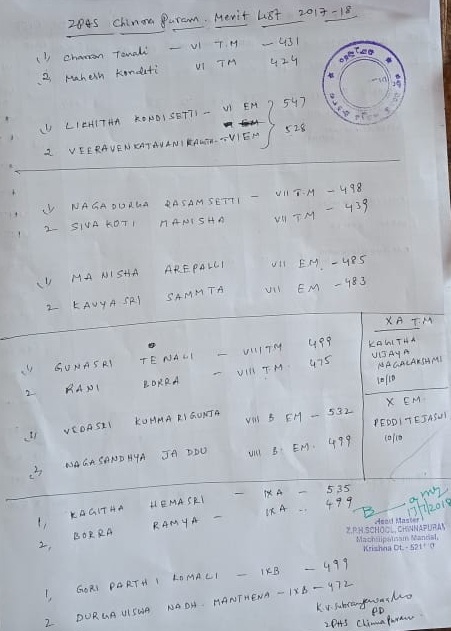 ZPHS Chinna Puram. Merit List 2017-18
1) Charan Tenali - VI T.M - 431
2, Mahesh Kondeti VI TM 424
1) LIKHITHA KONDISETTI - VI EM 547
2 - VI EM 528
1) NAGADURGA RASAMSETTI - VII T.M - 498
2 - SIVA KOTI MANISHA VII T.M - 439
1) MANISHA AREPALLI VII EM. - 485
2 - KAVYA SRI SAMMTA VII EM - 483
1) GUNASRI TENALI - VIII TM 499
2 RANI BORRA - VIII T.M. 475
1) VEDASRI KOMMARIGUNTA VIII B EM - 532
2, NAGASANDHYA JADDU VIII B. EM. 499
X A T.M
KAGITHA
VIJAYA
NAGALAKSHMI
10/10
X EM
PEDDI TEJASWI
10/10
1, KAGITHA HEMASRI - IX A - 535
2, BORRA RAMYA - IX A. 499
17/7/2018
Head Master
Z.P.H.SCHOOL, CHINNAPURAM
Machilipatnam Mandal,
Krishna Dt.-
1, GORIPARTHI KOMALI - IX B - 499
2 DURGA VISWANADH. MANTHENA - IX B - 472
PD
ZPHS Chinnapuram